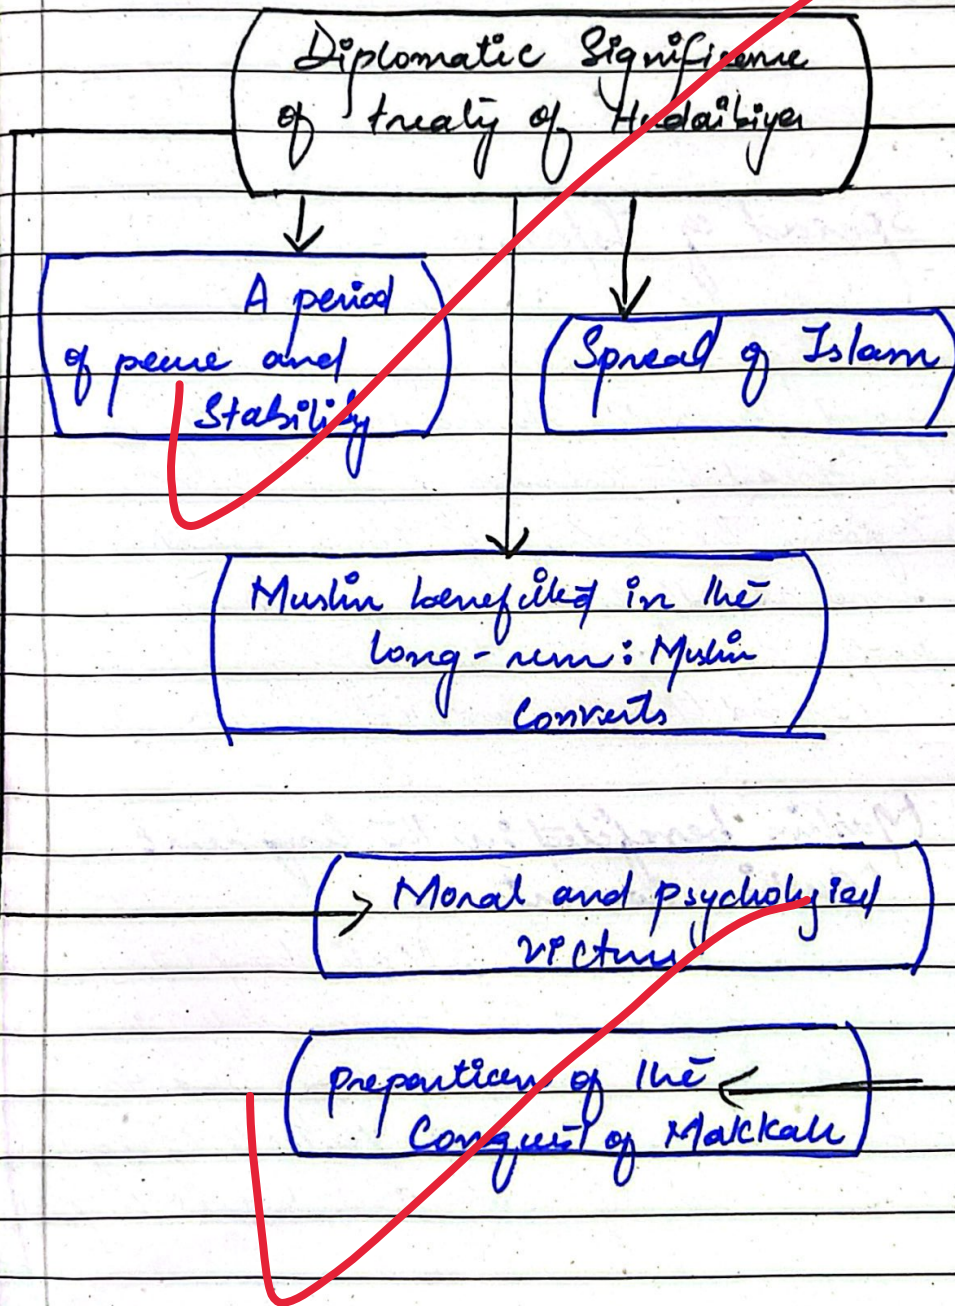 Diplomatic Significance
of treaty of Hudaibiya
A period
of peace and
Stability
Spread of Islam
Muslim benefitted in the
long-run: Muslim
Converts
Moral and psychological
victory
Preparation of the
Conquest of Makkah